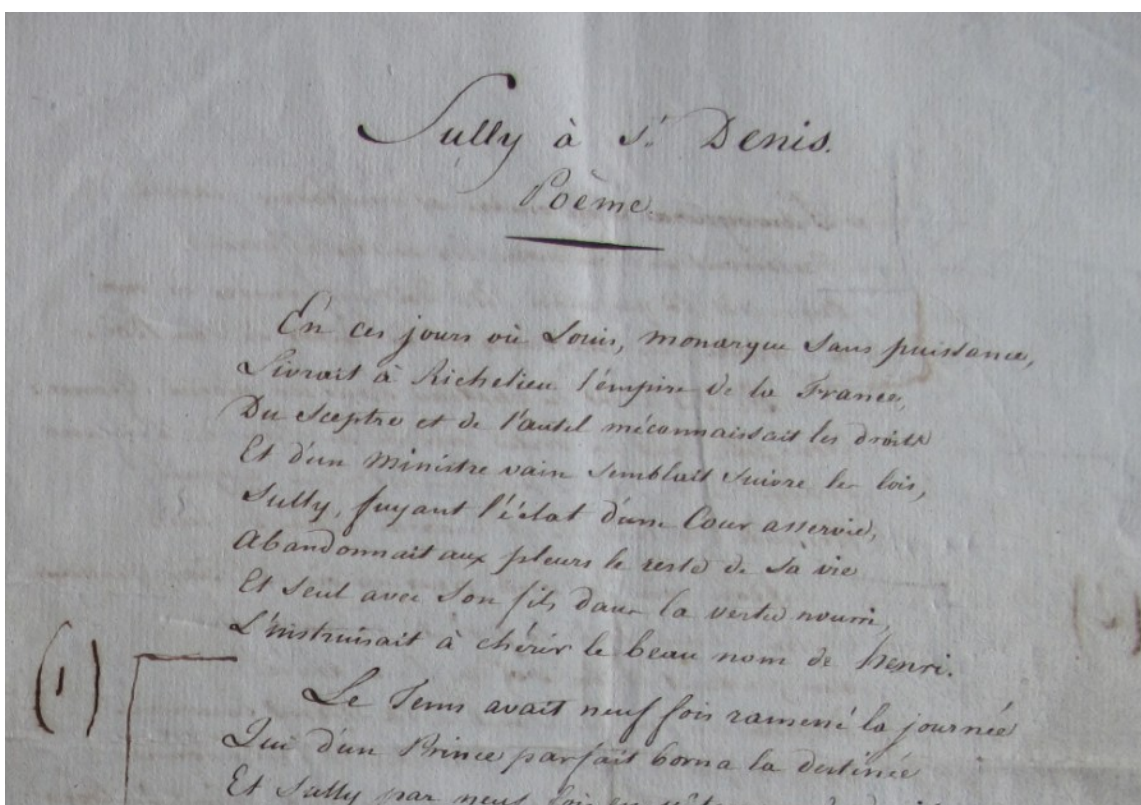 Sully à St. Denis.
Poème.
En ces jours où Louis, monarque sans puissance,
Livrait à Richelieu l'empire de la France,
Du Sceptre et de l'autel méconnaissait les droits
Et d'un Ministre vain semblait suivre les lois,
Sully, fuyant l'éclat d'une Cour asservie,
Abandonnait aux pleurs le reste de sa vie
Et seul avec son fils dans la vertu nourri,
L'instruisait à chérir le beau nom de henri.
(1)
Le Tems avait neuf fois ramené la journée
Qui d'un Prince parfait borna la destinée
Et Sully par neuf fois